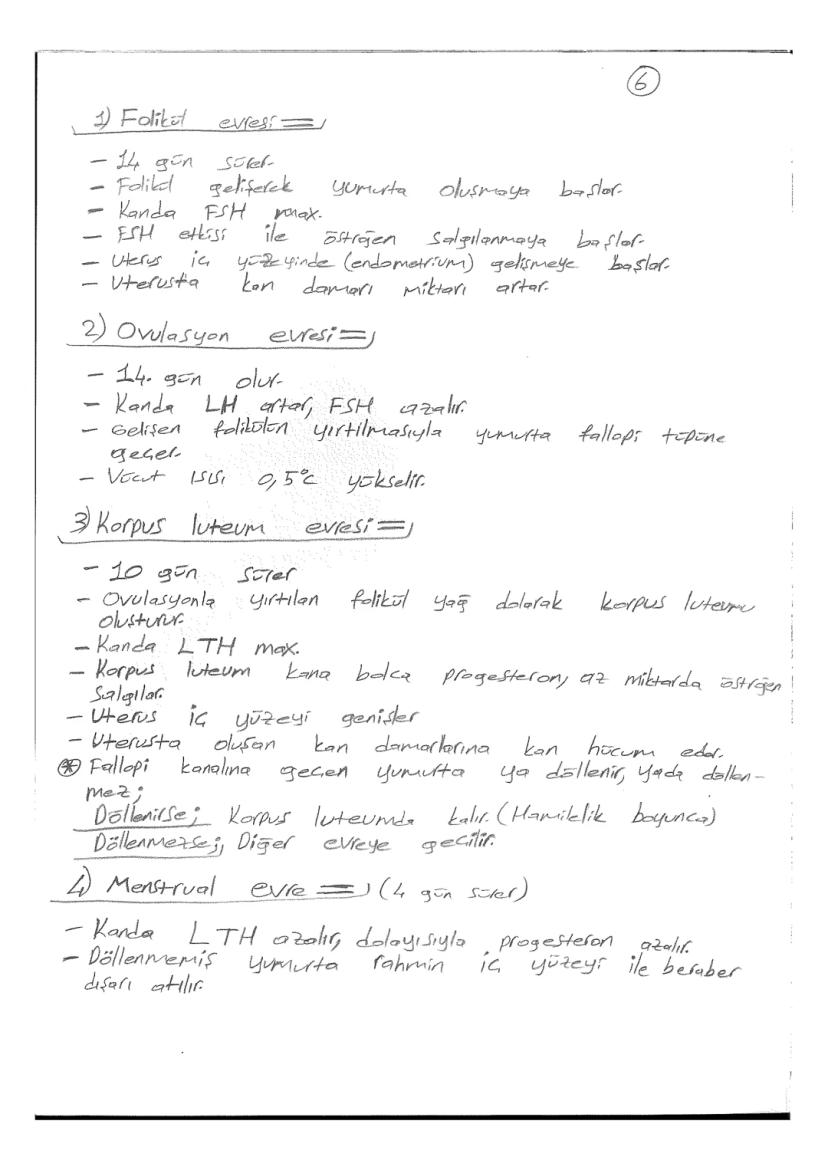 6
1) Folikül evresi =
- 14 gün sürer.
- Folikül gelişerek yumurta oluşmaya başlar.
- Kanda FSH max.
- FSH etkisi ile östrojen salgılanmaya başlar.
- Uterus iç yüzeyinde (endometrium) gelişmeye başlar.
- Uterusta kan damarı miktarı artar.
2) Ovulasyon evresi =
- 14. gün olur.
- Kanda LH artar, FSH azalır.
- Gelişen folikülün yırtılmasıyla yumurta fallopi tüpüne
geçer.
- Vücut ısısı 0,5°C yükselir.
3) Korpus luteum evresi =
- 10 gün sürer
- Ovulasyonla yırtılan folikül yağ dolarak korpus luteumu
oluşturur.
- Kanda LTH max.
- Korpus luteum kana bolca progesteron, az miktarda östrojen
salgılar.
- Uterus iç yüzeyi genişler
- Uterusta oluşan kan damarlarına kan hücum eder.
* Fallopi kanalına geçen yumurta ya döllenir, yada döllen-
mez;
Döllenirse; Korpus luteumda kalır. (Hamilelik boyunca)
Döllenmezse; Diğer evreye geçilir.
4) Menstrual evre = (4 gün sürer)
- Kanda LTH azalır, dolayısıyla progesteron azalır.
- Döllenmemiş yumurta rahmin iç yüzeyi ile beraber
dışarı atılır.